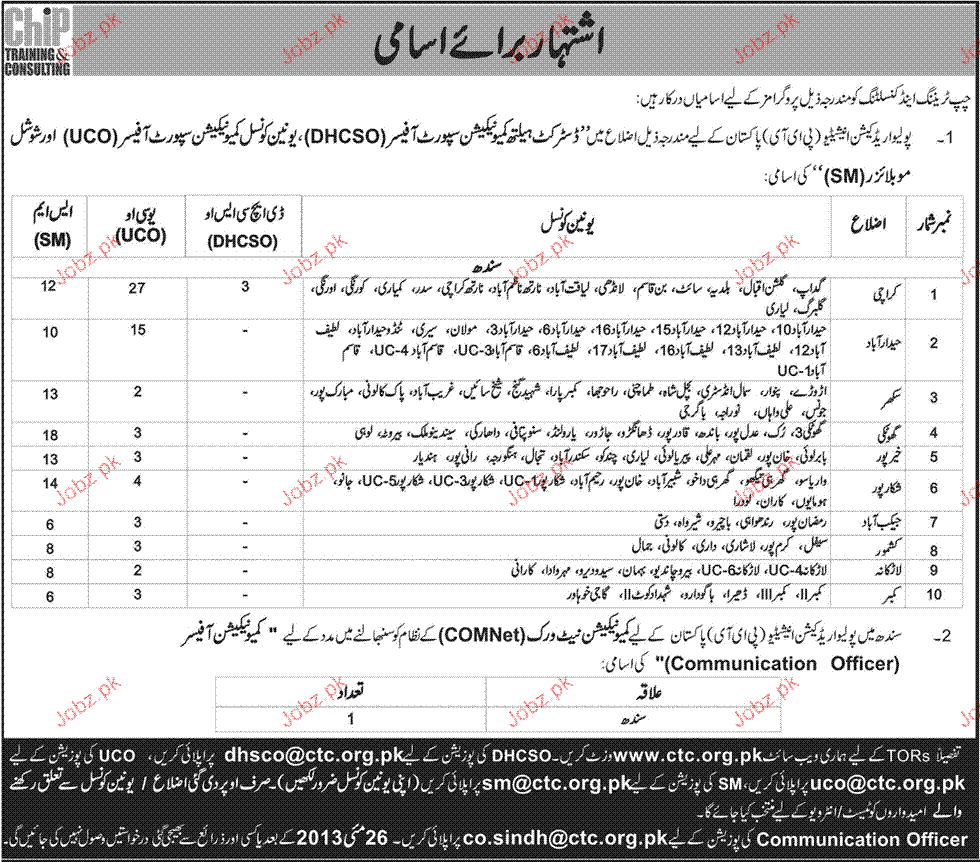 ChiP
TRAINING &
CONSULTING
اشتہار برائے اسامی
چپ ٹریننگ اینڈ کنسلٹنگ کو مندرجہ ذیل پروگرامز کے لیے اسامیاں درکار ہیں:
1۔ پولیو اریڈیکیشن انیشیٹیو (پی ای آئی) پاکستان کے لیے مندرجہ ذیل اضلاع میں ”ڈسٹرکٹ ہیلتھ کمیونیکیشن سپورٹ آفیسر (DHCSO)، یونین کونسل کمیونیکیشن سپورٹ آفیسر (UCO) اور شوشل
موبلائزر (SM)“ کی اسامی:
نمبر شمار اضلاع یونین کونسل ڈی ایچ سی ایس او (DHCSO) یو سی او (UCO) ایس ایم (SM)
سندھ
1 کراچی گداپ، گلشن اقبال، بلدیہ، سائٹ، بن قاسم، لانڈھی، لیاقت آباد، نارتھ ناظم آباد، نارتھ کراچی، سدر، کمیاری، کورنگی، اورنگی، 3 27 12
گلبرگ، لیاری
2 حیدارآباد حیدارآباد10، حیدارآباد12، حیدارآباد15، حیدارآباد16، حیدارآباد6، حیدارآباد3، مولان، سیری، ٹنڈو حیدارآباد، لطیف - 15 10
آباد12، لطیف آباد13، لطیف آباد16، لطیف آباد17، لطیف آباد6، قاسم آباد UC-3، قاسم آباد UC-4، قاسم
آباد UC-1
3 سکھر اڑوڑے، پنوار، سمال انڈسٹری، بچل شاہ، طماچنی، راحوجھا، کمبرپارا، شہید گنج، شیخ سائیں، غریب آباد، پاک کالونی، مبارک پور، - 2 13
جونس، علی واہاں، نوراجہ، باگرجی
4 گھوٹکی گھوٹکی3، رُک، عدل پور، باندھ، قادر پور، ڈھانگڑو، جاڑور، یارولنڈ، سنوپتافی، داھارکی، سیندینوملک، بیروٹہ، لوہی - 3 18
5 خیرپور بابرلوئی، خان پور، لقمان، مہرعلی، پیریالوئی، لیاری، چندکو، سکندرآباد، تجال، ہنگورجہ، رانی پور، ہندیار - 3 13
6 شکارپور واریاسو، گھربی جیگھو، گھربی داخو، شبیرآباد، خان پور، رحیم آباد، شکارپور UC-1، شکارپور UC-3، شکارپور UC-5، جانو، - 4 14
ہومایوں، کاران، لوڈرا
7 جیکب آباد رمضان پور، رندھواہی، باچیرو، شیرواہ، دستی - 3 6
8 کشمور سیفل، کرم پور، لاشاری، داری، کالونی، جمال - 3 8
9 لاڑکانہ لاڑکانہ UC-4، لاڑکانہ UC-6، بیروچانڈیو، بہمان، سیدودیرو، مہروادا، کارانی - 2 8
10 کمبر کمبرII، کمبرIII، ڈھیرا، باگودارو، شہدادکوٹII، گاجی خوہاور - 3 6
2۔ سندھ میں پولیو اریڈیکیشن انیشیٹیو (پی ای آئی) پاکستان کے لیے کمیونیکیشن نیٹ ورک (COMNet) کے نظام کو سنبھالنے میں مدد کے لیے " کمیونیکیشن آفیسر
(Communication Officer)" کی اسامی:
علاقہ تعداد
سندھ 1
تفصیلاً TORs کے لیے ہماری ویب سائٹ www.ctc.org.pk وزٹ کریں۔ DHCSO کی پوزیشن کے لیے dhsco@ctc.org.pk پر اپلائی کریں، UCO کی پوزیشن کے لیے
uco@ctc.org.pk پر اپلائی کریں، SM کی پوزیشن کے لیے sm@ctc.org.pk پر اپلائی کریں (اپنی یونین کونسل ضرور لکھیں)۔ صرف اوپر دی گئی اضلاع / یونین کونسل سے تعلق رکھنے
والے امیدواروں کو ٹیسٹ/انٹرویو کے لیے منتخب کیا جائے گا۔
Communication Officer کی پوزیشن کے لیے co.sindh@ctc.org.pk پر اپلائی کریں۔ 26 مئی 2013 کے بعد یا کسی اور ذرائع سے بھیجی گئی درخواستیں وصول نہیں کی جائیں گی۔
Jobz.pk